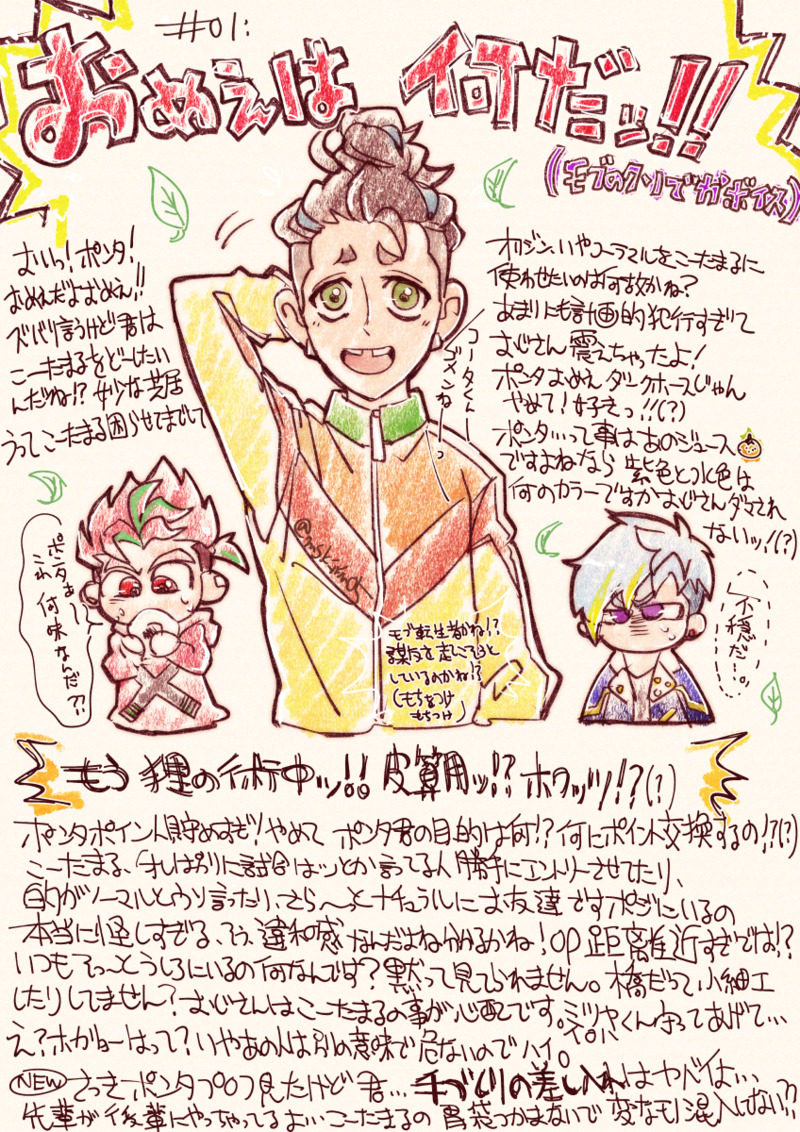 #01:
おめぇは 何だッ!!
(モブのクソデカボイス)
おいっ!ポンタ!
おめんだよおめぇ!!
ズバリ言うけど君は
こーたまるをどーしたい
んだね!?妙な芝居
うってこーたまる困らせてまでして
オリジン、いやコーラマルをこーたまるに
使わせたいのは何故かね?
あまりにも計画的犯行すぎて
おじさん震えちゃったよ!
ポンタおめぇダークホースじゃん
やめて!好きっ!!(?)
ポンタ…って事はあのジュース
ですよねなら 紫色と水色は
何のカラーですかおじさんダマされ
ないッ!(?)
コータくんーっ
ゴメンね
ポンタぁ〜
これ 何味なんだ??
不穏だ…。
モブ転生者かね!?
謀反を起こそうと
しているのかね!?
(もちつけ
もちつけ)
もう 狸の術中ッ!! 皮算用ッ!? ホワッツ!?(?)
ポンタポイント貯めすぎ!やめて ポンタ君の目的は何!? 何にポイント交換するの!?(?)
こーたまる、「オレばっかりに試合は」っとか言ってる人 勝手にエントリーさせてたり、
的がノーマルとウソ言ったり、さら〜っとナチュラルにお友達ですポジにいるの
本当に怪しすぎる、そう、違和感なんだよね分かるかね!OP距離近すぎでは!?
いつもそ〜っとうしろにいるの何なんです?黙って見てられません。橋だって小細工
したりしてません?おじさんはこーたまるの事が心配です。ミツヤくん守ってあげて…
え?ホガゥーはって?いやあの人は別の意味で危ないのでハイ。
NEW さっきポンタプロフ見たけど君… 手づくりの差し入れはヤベイよ…
先輩が後輩にやっちゃってるよぃ…こーたまるの胃袋つかまないで変なモノ混入しない??